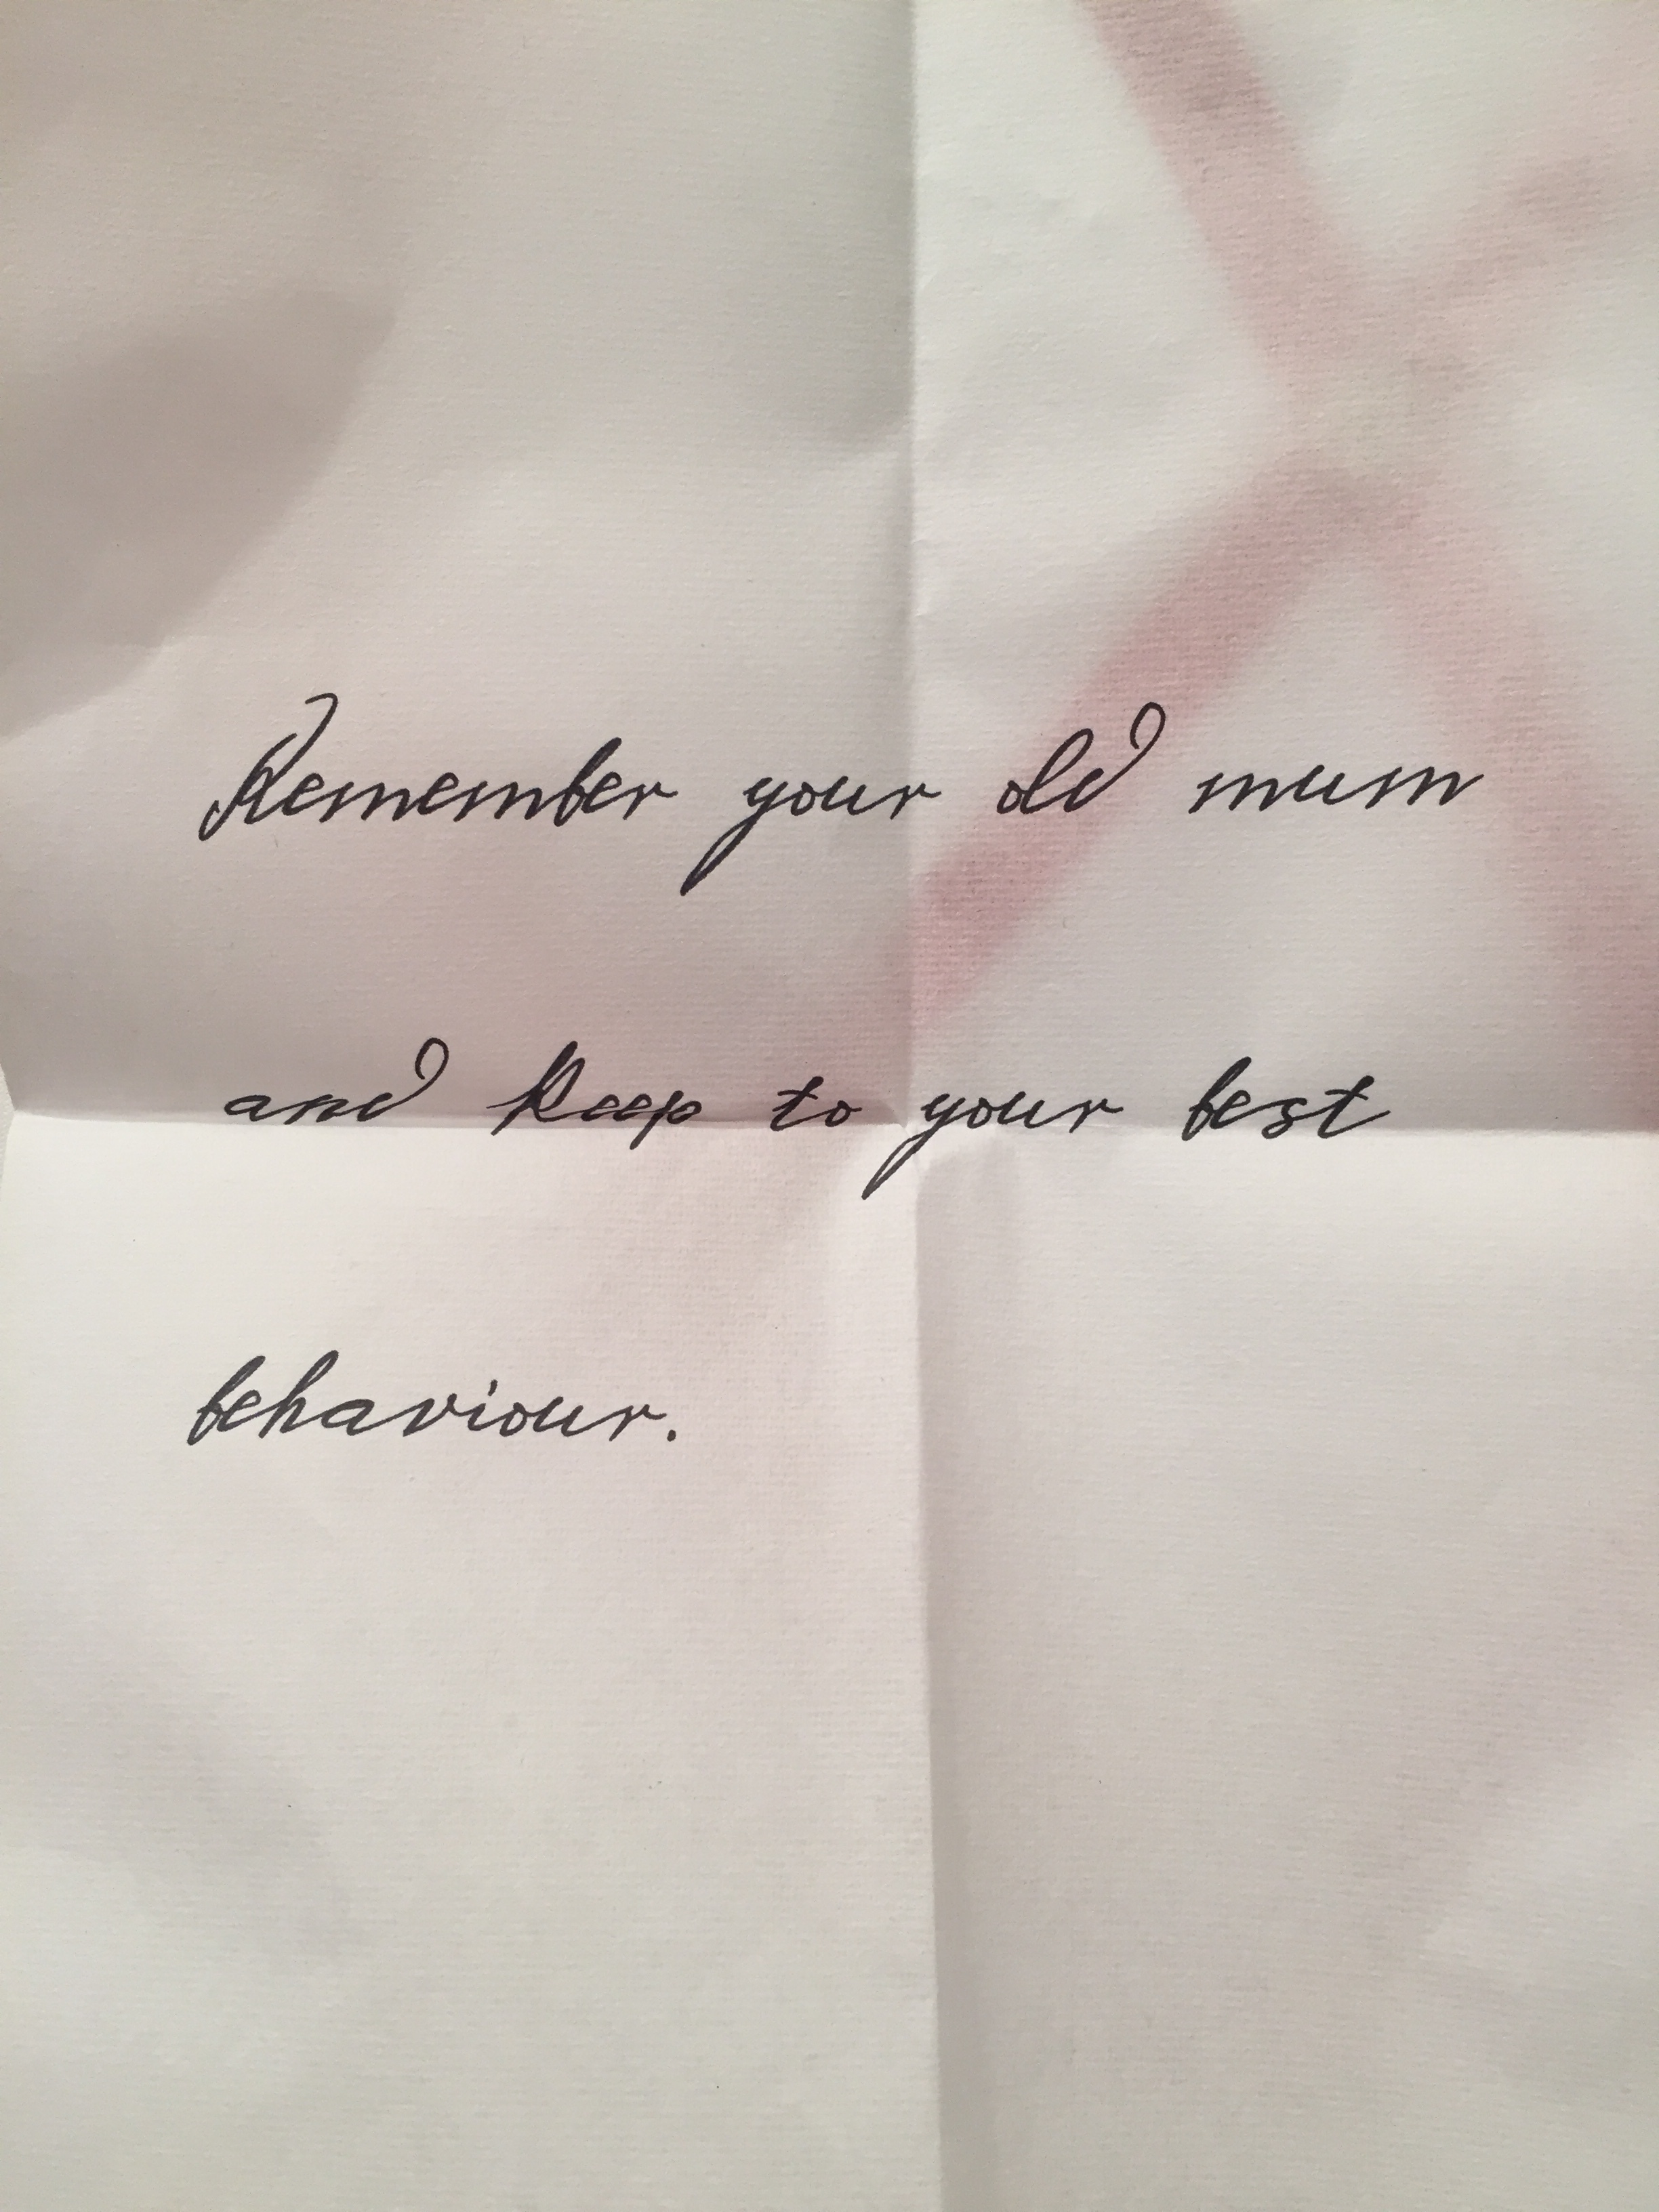 Remember your old mum
and keep to your best
behaviour.